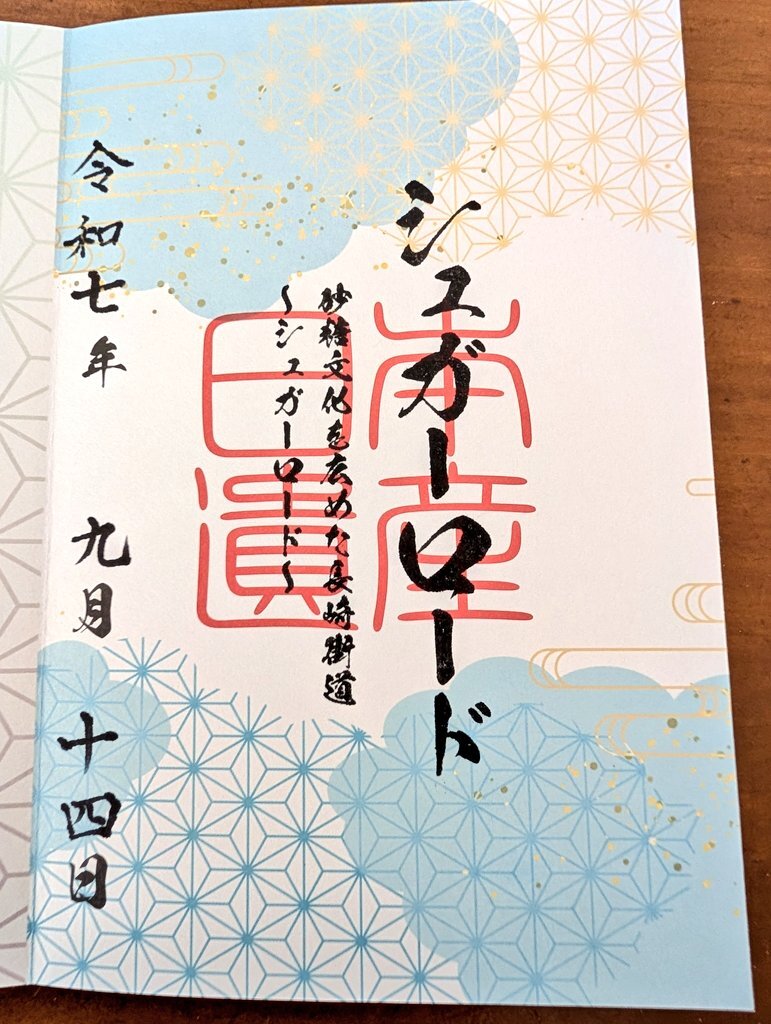 シュガーロード
砂糖文化を広めた長崎街道
〜シュガーロード〜
日本遺産
令和七年 九月 十四日